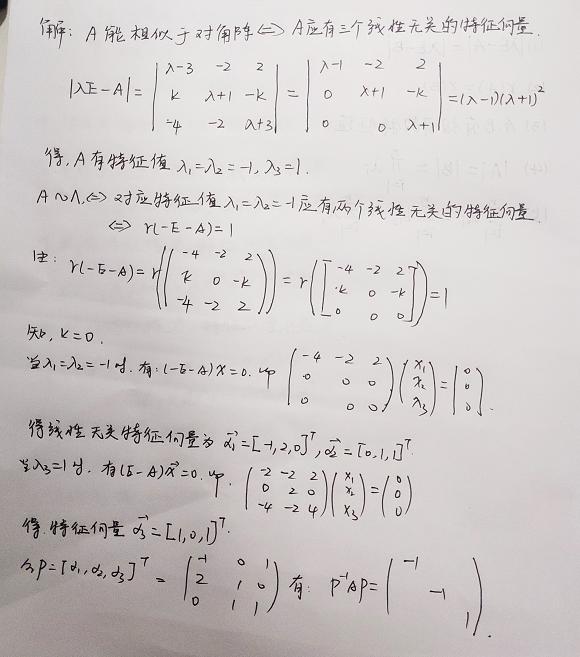 解: A能相似于对角阵 ⇔ A应有三个线性无关的特征向量.
|λE-A| = | λ-3 -2 2 ; k λ+1 -k ; -4 -2 λ+3 | = | λ-1 -2 2 ; 0 λ+1 -k ; 0 0 λ+1 | = (λ-1)(λ+1)²
得, A有特征值 λ₁=λ₂=-1, λ₃=1.
A~Λ, ⇔ 对应特征值 λ₁=λ₂=-1应有两个线性无关的特征向量.
⇔ r(-E-A)=1
由: r(-E-A)=r(( -4 -2 2 ; k 0 -k ; -4 -2 2 )) = r([ -4 -2 2 ; k 0 -k ; 0 0 0 ]) = 1
知, k=0.
当λ₁=λ₂=-1时. 有: (-E-A)X=0. 即 ( -4 -2 2 ; 0 0 0 ; 0 0 0 ) ( x₁ ; x₂ ; x₃ ) = ( 0 ; 0 ; 0 ).
得线性无关特征向量为 α₁=[-1,2,0]ᵀ, α₂=[0,1,1]ᵀ.
当λ₃=1时. 有(E-A)X=0. 即. ( -2 -2 2 ; 0 2 0 ; -4 -2 4 ) ( x₁ ; x₂ ; x₃ ) = ( 0 ; 0 ; 0 )
得. 特征向量 α₃=[1,0,1]ᵀ.
令P=[α₁,α₂,α₃]ᵀ = ( -1 0 1 ; 2 1 0 ; 0 1 1 ) 有: P⁻¹AP= ( -1 ; -1 ; 1 ).